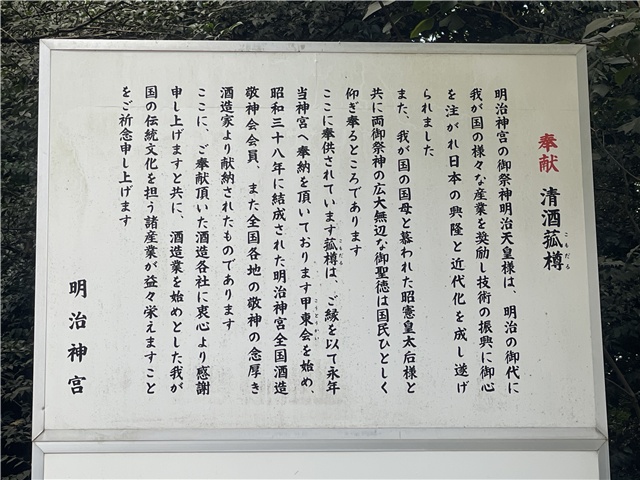 奉献 清酒菰樽
こもだる
明治神宮の御祭神明治天皇様は、明治の御代に
我が国の様々な産業を奨励し技術の振興に御心
を注がれ日本の興隆と近代化を成し遂げ
られました
また、我が国の国母と慕われた昭憲皇太后様と
共に両御祭神の広大無辺な御聖徳は国民ひとしく
仰ぎ奉るところであります
ここに奉供されています菰樽は、ご縁を以て永年
こもだる
当神宮へ奉納を頂いております甲東会を始め、
こうとうかい
昭和三十八年に結成された明治神宮全国酒造
敬神会会員、また全国各地の敬神の念厚き
酒造家より献納されたものであります
ここに、ご奉献頂いた酒造各社に衷心より感謝
申し上げますと共に、酒造業を始めとした我が
国の伝統文化を担う諸産業が益々栄えますこと
をご祈念申し上げます
明治神宮